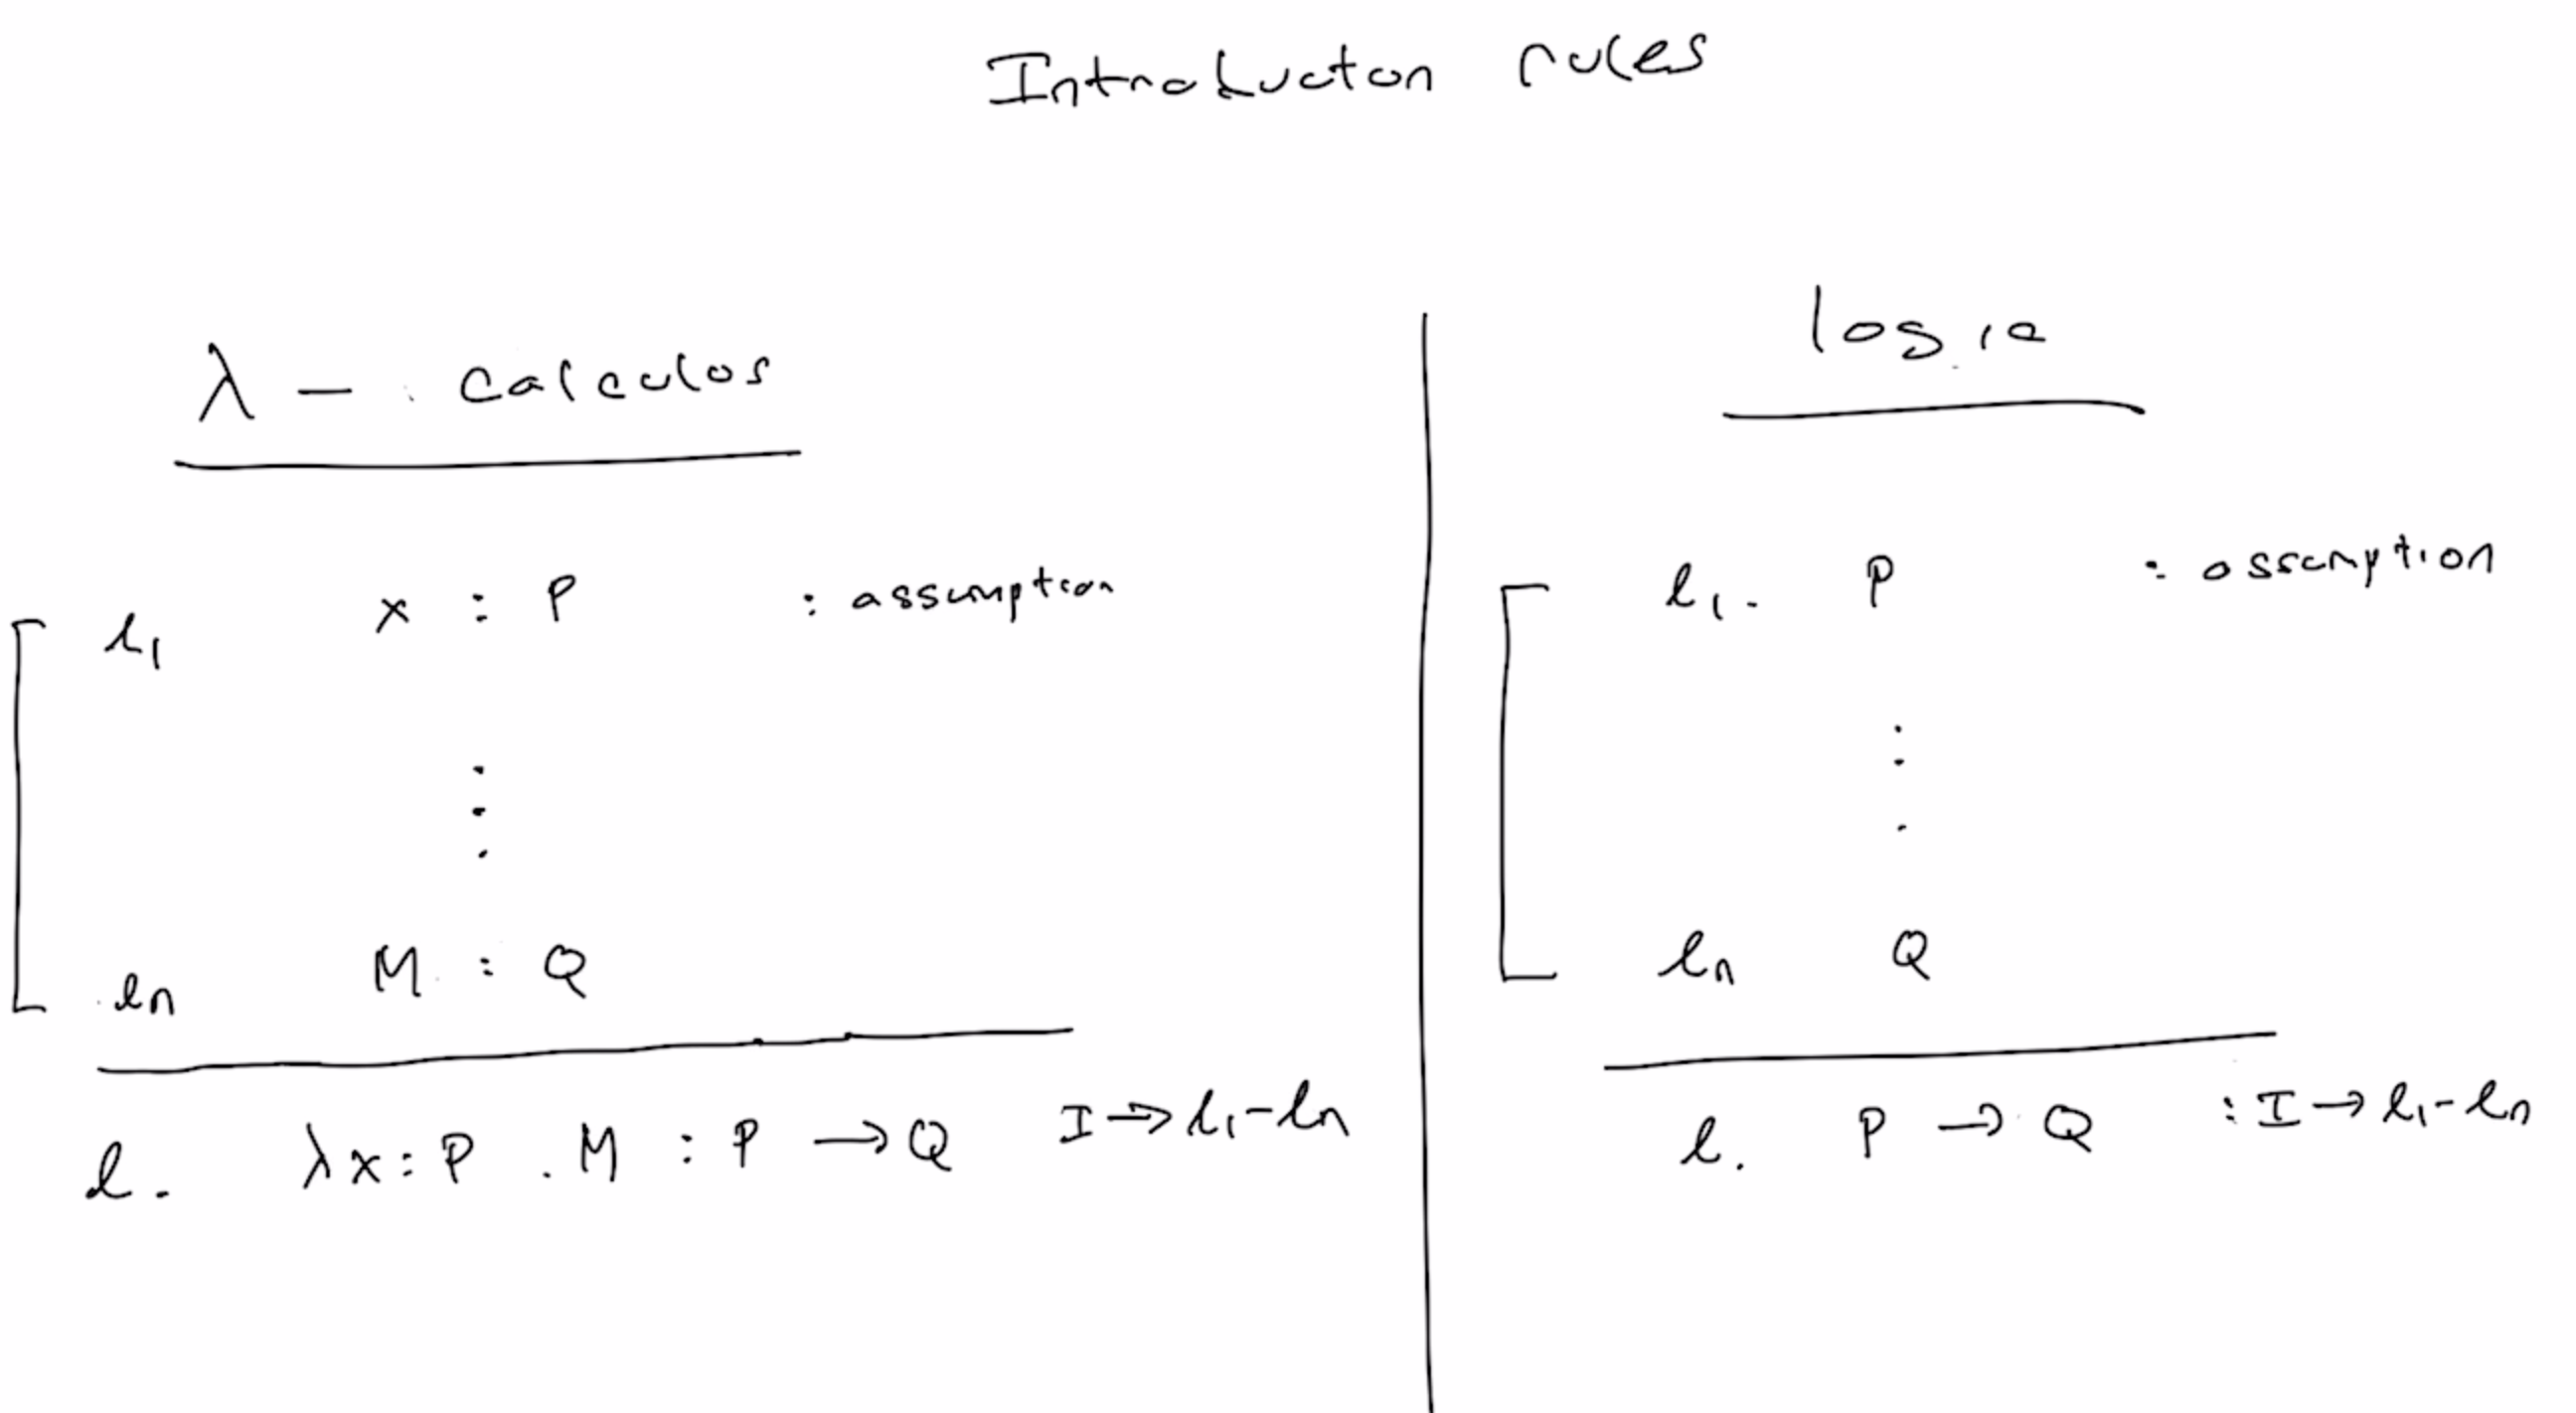 Introduction rules
λ - calculus
l1 x : P : assumption
⋮
ln M : Q
l. λx:P . M : P → Q I → l1-ln
logic
l1. P : assumption
⋮
ln Q
l. P → Q : I → l1-ln